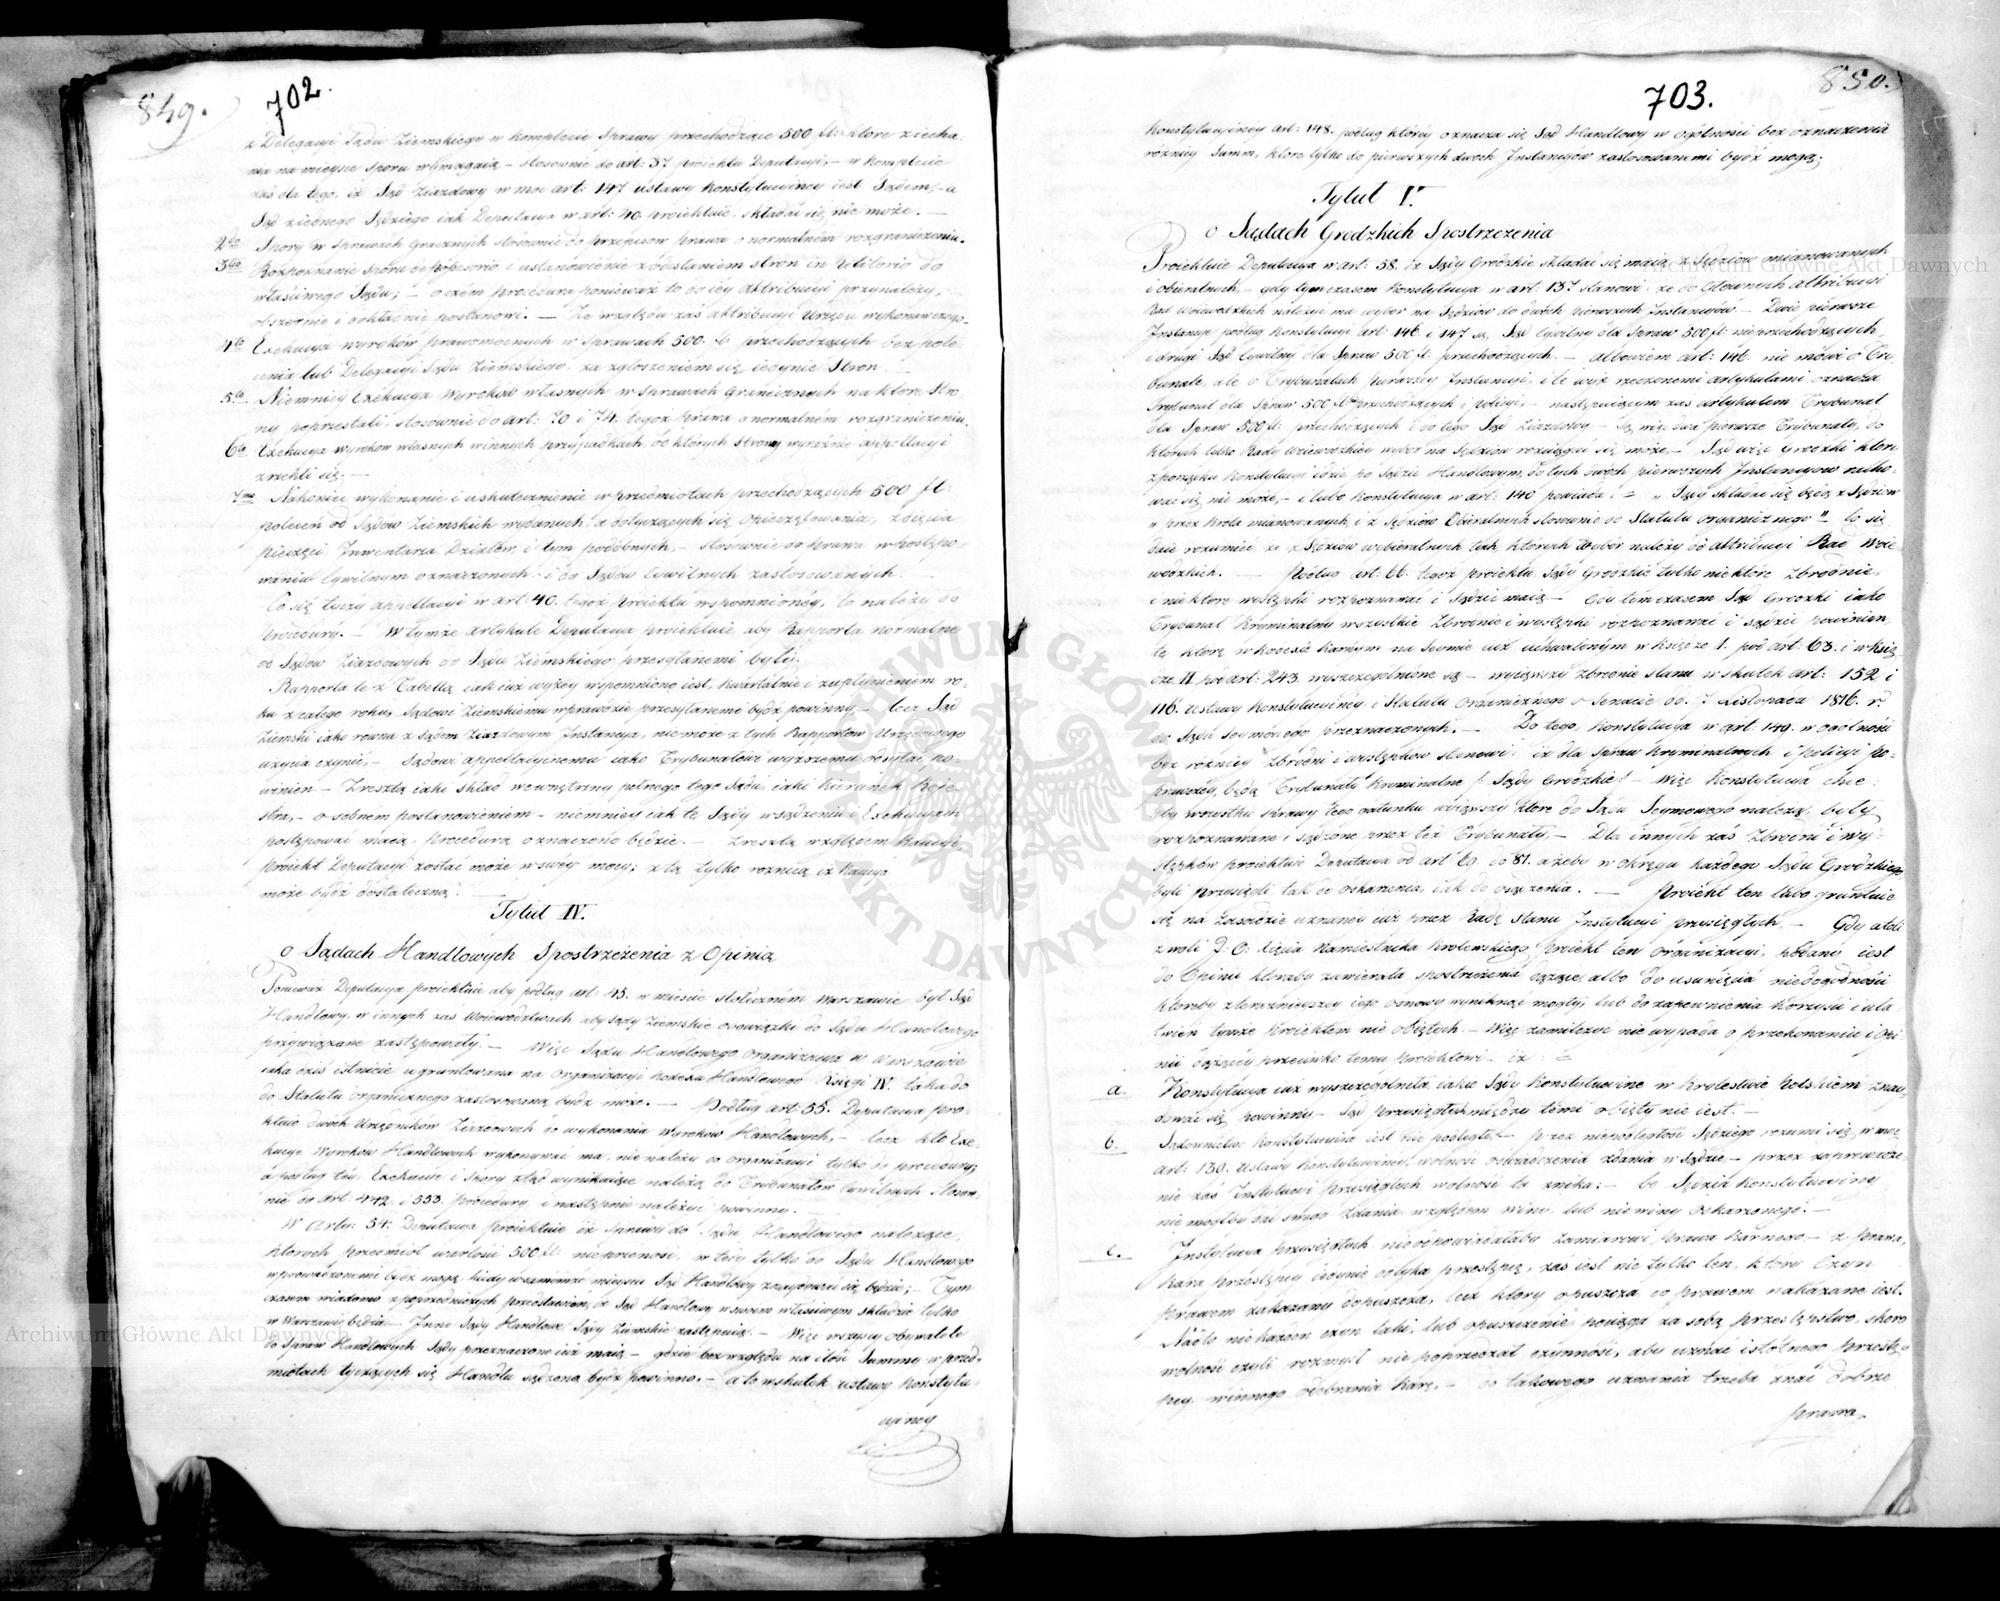 849.
702.
z Delegacyi Sądu Ziemskiego w komplecie Sprawy przechodzące 500 fl: które ziecha
nia na mieysce sporu wymagaią – stosownie do art: 37 proiektu Deputacyi, – w komplecie
zaś dla tego, iż Sąd Ziazdowy w moc art: 147 ustawy Konstytucyiney iest Sądem, – a
Sąd z iednego Sędziego iak Deputacya w art: 40. proiektuie, składać się nie może. –
2do Spory w Sprawach Granicznych stosownie do przepisow prawa o normalném rozgraniczeniu.
3tio Rozpoznanie Sporu de possesorio i ustanowienie z odesłaniem stron in petitorio do
właściwego Sądu; – o czém procedura ponieważ to do iey attribucyi przynależy, –
obszernie i dokładnie postanowi. – Ze względu zaś attribucyi Urzędu wykonawczego
4to Exekucya wyroków prawomocnych w Sprawach 500. fl: przechodzących bez pole
cenia lub Delegacyi Sądu Ziemskiego, za zgłoszeniem się iedynie Stron
5to Niemniey Exekucya Wyroków własnych w Sprawach Granicznych na które Stro
ny poprzestali, stosownie do art: 70 i 74. tegoż prawa o normalném rozgraniczeniu.
6to Exekucya wyrokow własnych w innych przypadkach, od których Strony wyraźnie appellacyi
zrzekli się. –
7mo Nakoniec wykonanie i uskutecznienie w przedmiotach przechodzących 500 fl:
poleceń od Sądow Ziemskich wydanych, a dotyczących się opieczętowania, zdięcia
pieczęci, Inwentarza, Działów, i tym podobnych, – stosownie do prawa w postępo-
waniu Cywilnym oznaczonych i do Sądów Cywilnych zastosowanych.
Co się tyczy appellacyi w art: 40. tegoż proiektu wspomnioney, to należy do
procedury. – W tymże artykule Deputacya proiektuie, aby Rapporta normalne
od Sądow Ziazdowych do Sądu Ziemskiego przesyłanemi były.
Rapporta te z Tabellą iak iuż wyżey wspomniono iest, kwartalnie i z upłynieniem ro-
ku z całego roku, Sądowi Ziemskiemu wprawdzie przesyłanemi bydź powinny, – lecz Sąd
Ziemski iako rowna z Sądem Ziazdowym Instancya, nie może z tych Rapportow Urzędowego
użycia czynić, – Sądowi appellacyinemu iako Trybunałowi wyższemu odsyłać po-
winien – Zresztą iaki skład wewnętrzny pełnego tego Sądu, iaki kierunek Reje-
stra, – osobnem postanowieniem – niemniey iak te Sądy w sądzeniu i Exekucyach
postępować maią, procedurą oznaczono będzie. – Zresztą względem Kaucyi
proiekt Deputacyi zostać może w swey mocy; z tą tylko roznicą iż Kaucya
może bydź dostateczną.
Tytuł IV.
o Sądach Handlowych Spostrzeżenia z Opinią
Ponieważ Deputacya proiektuie aby podług art: 45. w mieście stołeczném Warszawie był Sąd
Handlowy, w innych zaś Woiewodztwach aby Sądy Ziemskie obowiązki do Sądu Handlowego
przywiązane zastępowały. – Więc Sądu Handlowego Organizacya w Warszawie
iaka dziś istnieie ugruntowana na Organizacyi Kodexu Handlowego Księgi IV. taka do
do Statutu organicznego zastosowaną bydź może. – Podług art: 55. Deputacya pro-
iektuie dwóch Urzędników Ziazdowych do wykonania Wyrokow Handlowych, – lecz kto Exe-
kucye Wyrokow Handlowych wykonywać ma, nie należy do organizacyi tylko do procedury;
a podług téy Exekucye i Spory ztąd wynikaiące należą do Trybunałow Cywilnych stosow-
nie do art: 442. i 553. procedury i następnie należyć powinny. –
W Artu: 54: Deputacya proiektuie iż Sprawy do Sądu Handlowego należące,
których przedmiot wartości 500 fl: nieprzenosi, wtedy tylko do Sądu Handlowego
wprowadzonemi bydź mogą, kiedy w samémże mieyscu Sąd Handlowy znaydować się będzie; – Tym
czasem wiadomo z poprzedniczych przedstawień, iż Sąd Handlowy w swoim właściwym składzie tylko
w Warszawie będzie – Inne Sądy Handlowe, Sądy Ziemskie zastępuią. – Więc wszyscy obywatele
do Spraw Handlowych Sądy przeznaczone iuż maią – gdzie bez względu na ilość Summy w przed-
miotach tyczących się Handlu sądzono bydź powinno. – a to w skutek ustawy Konstytu-
cyiney
850.
703.
Konstytucyiney art: 148. podług którey oznacza się Sąd Handlowy w ogólności bez oznaczenia
różnicy Summ, które tylko do pierwszych dwoch Instancyów zastosowanemi bydź mogą;
Tytuł V.
o Sądach Grodzkich Spostrzeżenia
Proiektuie Deputacya w art: 58. iż Sądy Grodzkie składać się maią z Sędziow mianowanych
i obieralnych, – gdy tymczasem Konstytucya w art: 137 stanowi: że do Głownych attribucyi
Rad Woiewodzkich należyć ma wybor na Sędziow do dwóch pierwszych Instancyów. – Dwie pierwsze
Instancye podług Konstytucyi art: 146. i 147 są, Sąd Cywilny dla Spraw 500 fl: nieprzechodzących
i drugi Sąd Cywilny dla Spraw 500 fl: przechodzących. – albowiem art: 146. nie mówi o Try-
bunale, ale o Trybunałach pierwszey Instancyi, i te wyż rzeczonemi artykułami oznacza
Trybunał dla Spraw 500 fl: nieprzechodzących i policyi, – następuiącym zaś artykułem Trybunał
dla Spraw 500 fl: przechodzących i do tego Sąd Ziazdowy – Są więc dwa pierwsze Trybunały, do
których tylko Rady Woiewodzkiey wybor na Sędziow rozciągać się może, – Sąd więc Grodzki który
z porządku Konstytucyi idzie po Sądzie Handlowym, do tych dwóch pierwszych Instancyow racho-
wać się nie może, – i lubo Konstytucya w art: 140 powiada: = „ Sądy składać się będą z Sędziow
„ przez Krola mianowanych, i z Sędziow Obieralnych stosownie do Statutu organicznego" – to się
daie rozumieć że z Sędziow wybieralnych tych, których Wybor należy do attribucyi Rad Woie-
wodzkich. – Podług art: 66. tegoż proiektu, Sądy Grodzkie tylko niektóre zbrodnie,
i niektóre występki rozpoznawać i sądzić maią – Gdy tymczasem Sąd Grodzki iako
Trybunał Kryminalny wszystkie Zbrodnie i występki rozpoznawać i sądzić powinien,
te, które w kodexie karnym na Seymie iuż uchwalonym w księdze I. pod art: 63. i w księ
dze II. pod art: 243. wyszczególnione są – wyiąwszy zbrodnie stanu w skutek art: 152 i
116. Ustawy Konstytucyiney i Statutu organicznego o Senacie dd. 7 Listopada 1816. r.
do Sądu Seymowego przeznaczonych. – Do tego, Konstytucya w art: 149. w ogolności
bez różnicy Zbrodni i występkow stanowi: iż dla Spraw kryminalnych i policyi po-
prawczey, będą Trybunały kriminalne (Sądy Grodzkie) – więc Konstytucya chce:
aby wszystkie sprawy tego gatunku wyiąwszy które do Sądu Seymowego należą, były
rozpoznawane i sądzone przez też Trybunały. – Dla innych zaś Zbrodni i wy-
stępków proiektuie Deputacya od art 69. do 81. ażeby w okręgu każdego Sądu Grodzkiego
byli przysięgli tak do oskarżenia, iak do osądzenia. – Proiekt ten lubo gruntuie
się na Zasadzie uznaney iuż przez Radę Stanu Instytucyi przysięgłych, – Gdy atoli
z woli J: O: Xięcia Namiestnika Krolewskiego, proiekt ten organizacyi, podany iest
do Opinii któraby zawierała spostrzeżenia dążące, albo do usunięcia niedogodności
któreby z teraźnieyszey iego osnowy wyniknąć mogły; lub do zapewnienia korzyści i uła
twień tymże proiektem nie obiętych – Więc zamilczeć nie wypada o przekonaniu i Opi-
nii dążącey przeciwko temu proiektowi – iż: =
a. Konstytucya iuż wyszczególniła, iakie Sądy Konstytucyine w Krolestwie Polskiem znay-
dować się powinny – Sąd przysięgłych między témi obięty nie iest. –
b. Sądownictwo Konstytucyine iest nie podległe – przez niepodległość Sędziego rozumi się, w moc
art: 139. Ustawy Konstytucyiney, wolność oświadczenia zdania w Sądzie – przez zaprowadze-
nie zaś Instytucyi przysięgłych wolność ta znika; – bo Sędzia Konstytucyiny
nie mógłby dać swego Zdania względem winy, lub niewiny Oskarżonego. –
c. Instytucya przysięgłych nieodpowiadałaby Zamiarowi prawa karnego – z prawa,
kara przestępcy iedynie dotyka przestępcę, zaś iest nie tylko ten, który Czyn
prawem zakazany dopuszcza, lecz który opuszcza co prawem nakazane iest.
Nadto nie każden czyn taki, lub opuszczenie pociąga za sobą przestępstwo, skoro
wolność czyli rozmysł nie poprzedzał czynności, aby uznać istotnego przestę-
pcę, winnego odebrania kary, – do takowego uznania trzeba znać dobrze
prawa,
Archiwum Główne Akt Dawnych
Archiwum Główne Akt Dawnych
ARCHIWUM GŁÓWNE
AKT DAWNYCH